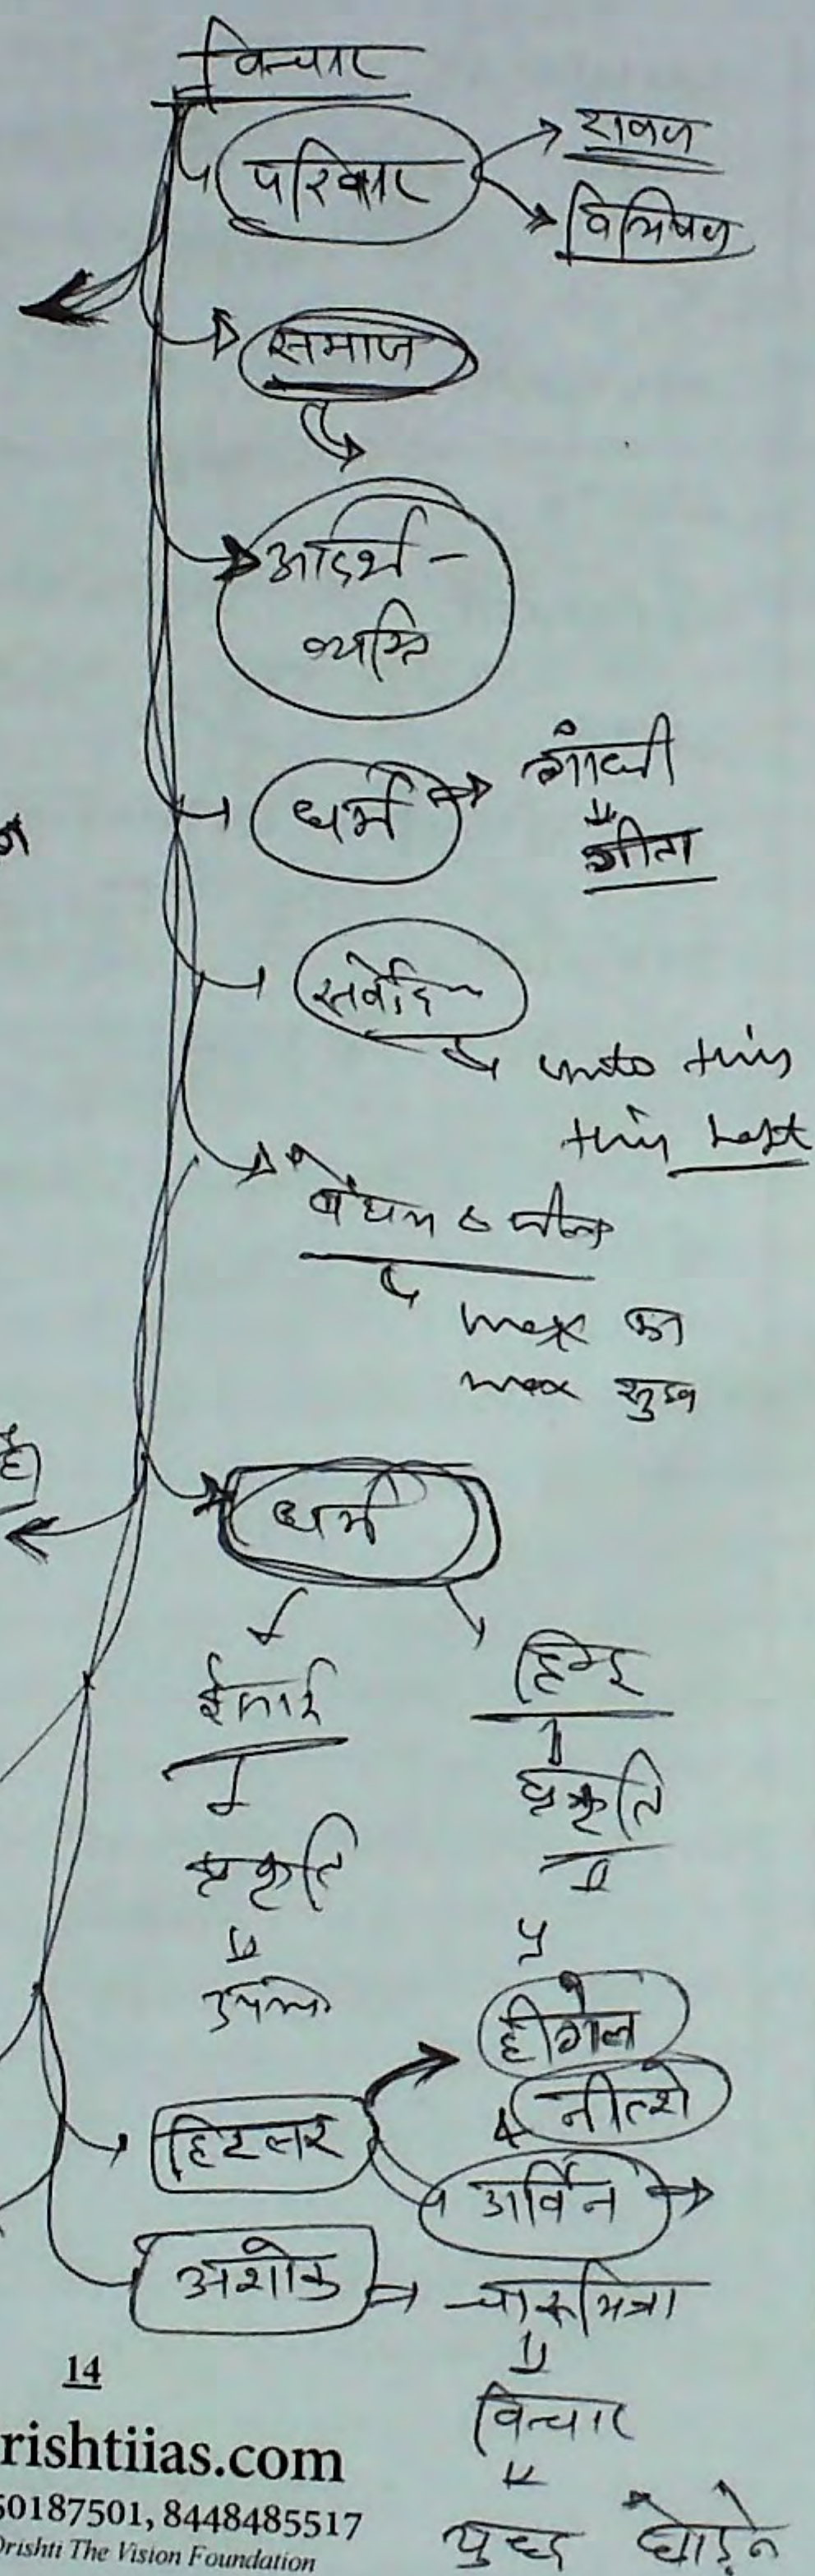 विचार
परिवार
रावण
विभिषण
समाज
आदर्श -
व्यक्ति
धर्म
गांधी
गीता
सर्वोद
unto this
this Last
बेंथम & मील
max का
max सुख
है
धर्म
ईसाई
हिन्दू
प्रकृति
प्रकृति
उपभो
हीगेल
& नीत्शे
हिटलर
डार्विन
अशोक
चारूमित्रा
विचार
युद्ध छोड़ने
14
rishtiias.com
50187501, 8448485517
Drishti The Vision Foundation